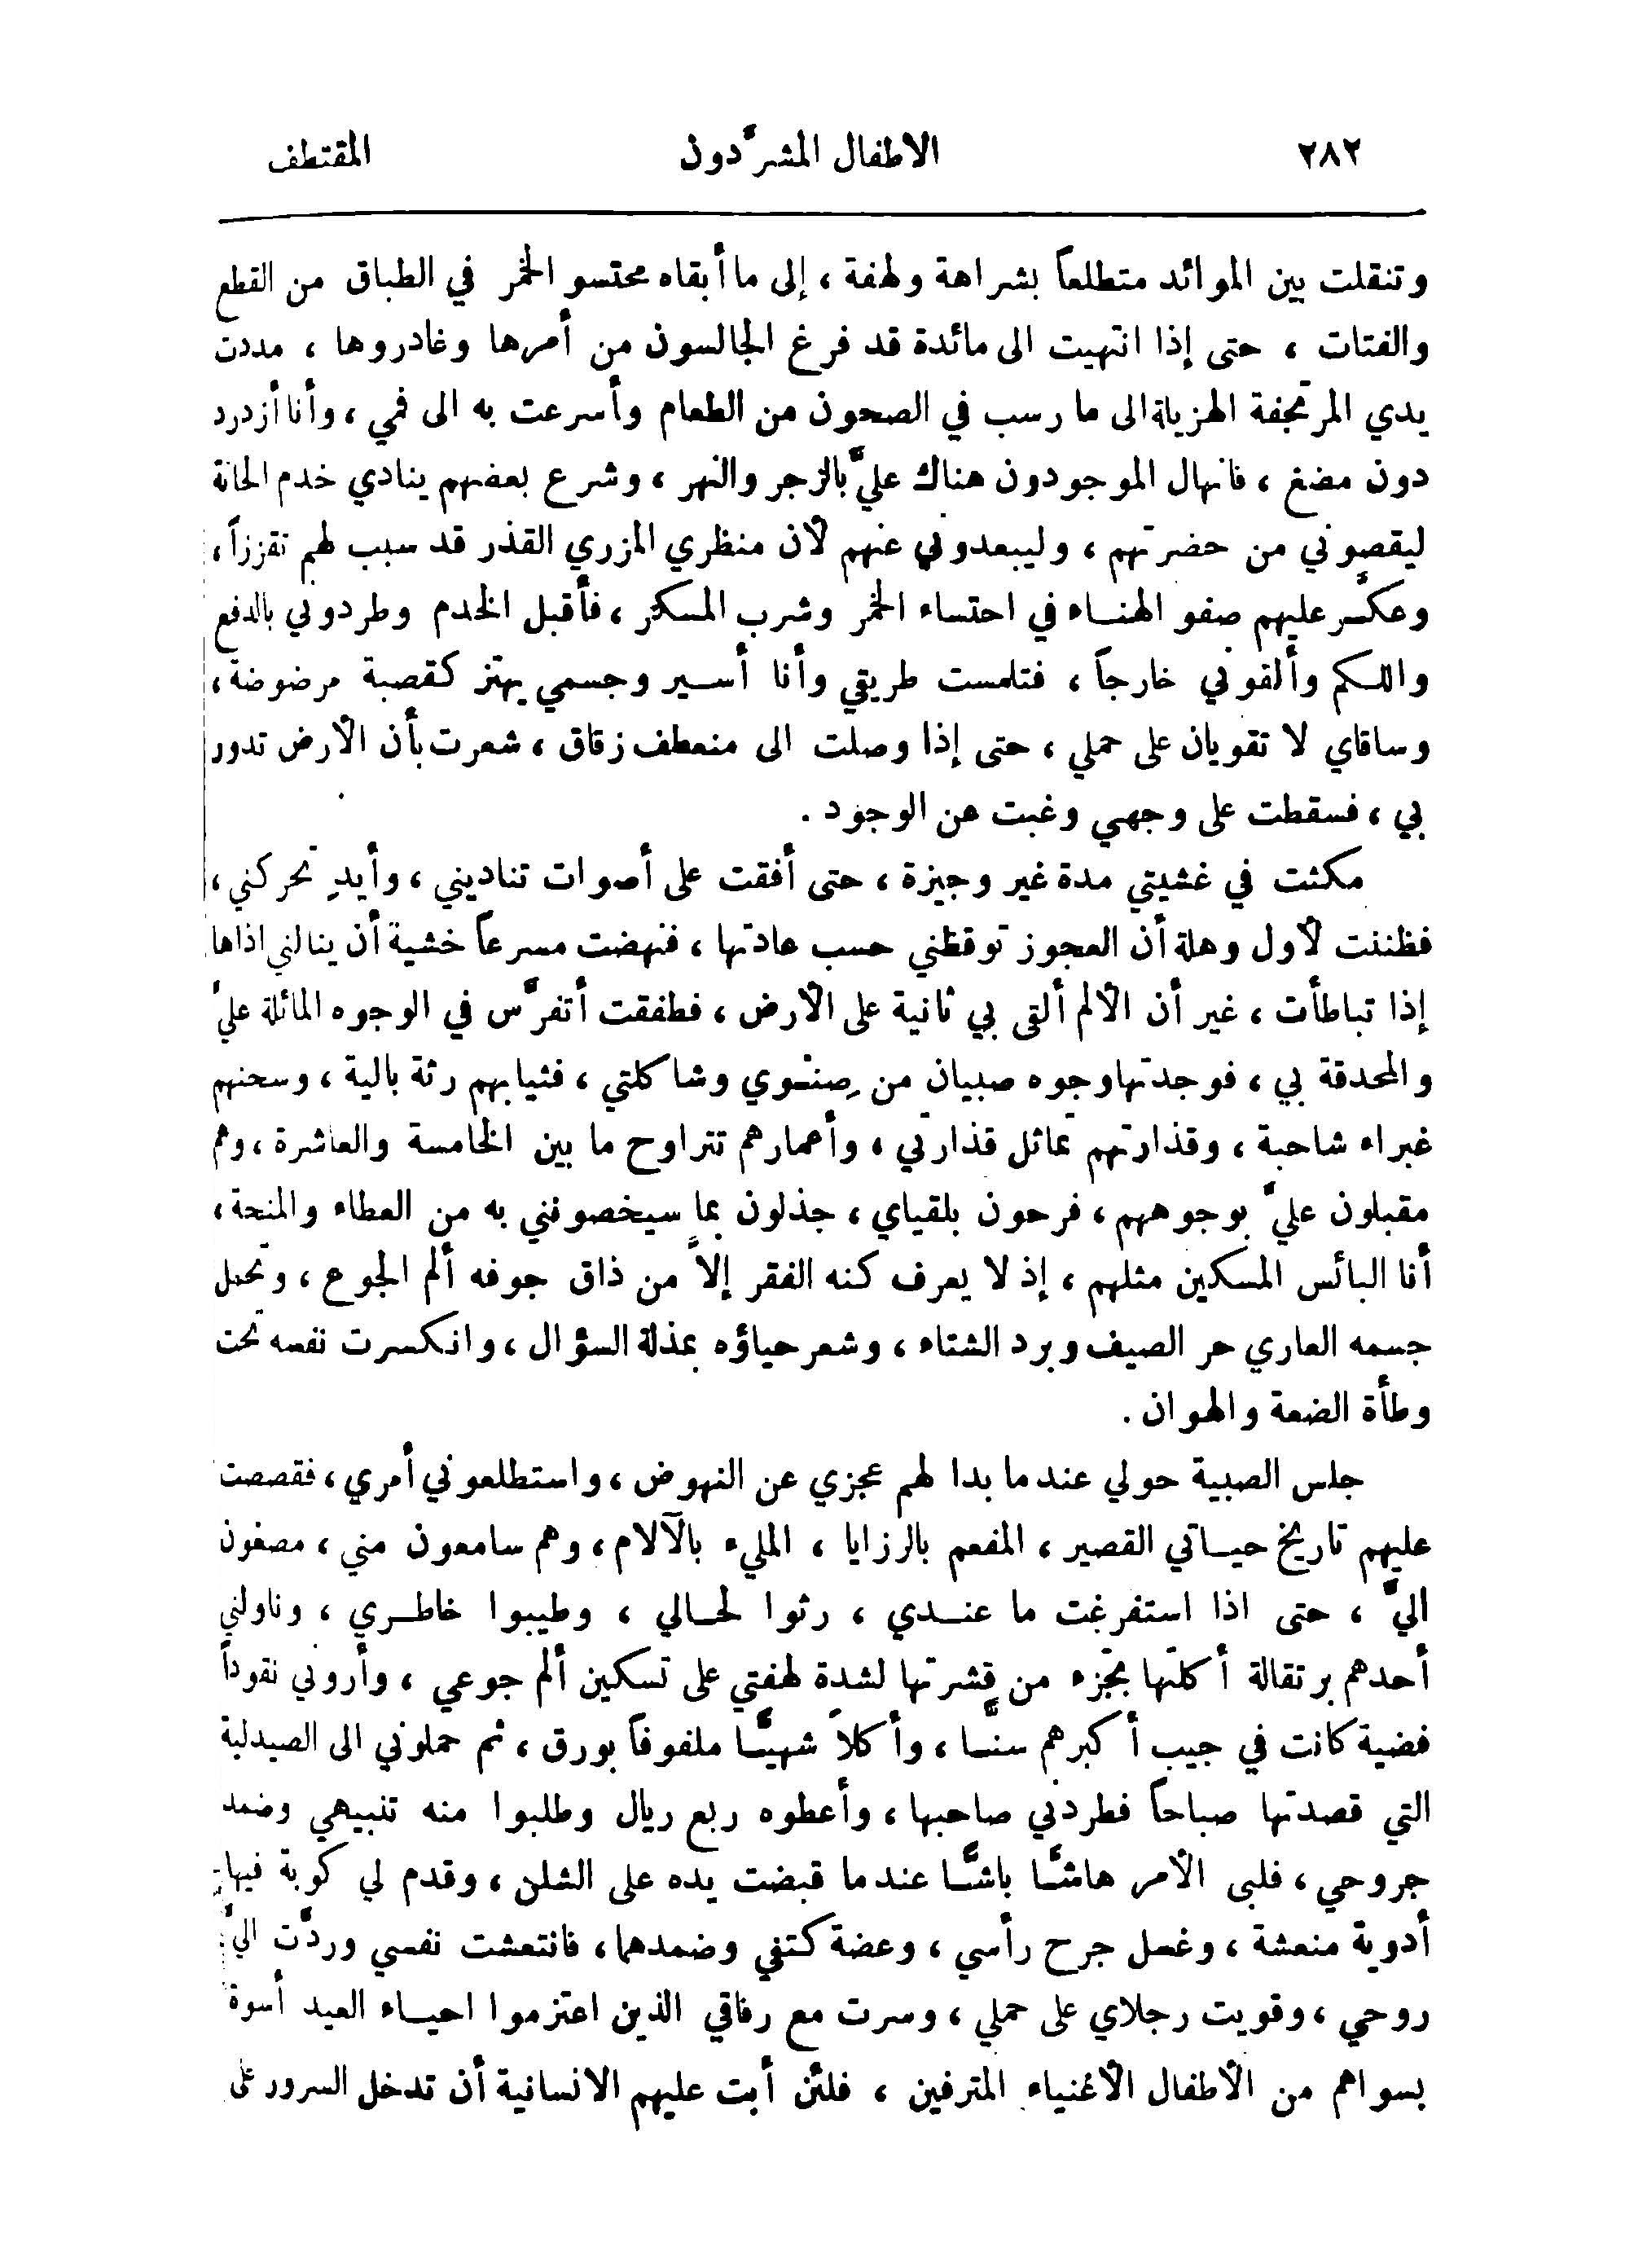 ٢٨٢ الاطفال المشرَّدون المقتطف
وتنقلت بين الموائد متطلعاً بشراهة ولهفة ، إلى ما أبقاه محتسو الخمر في الطباق من القطع
والفتات ، حتى إذا انتهيت الى مائدة قد فرغ الجالسون من أمرها وغادروها ، مددت
يدي المرتجفة الهزيلة الى ما رسب في الصحون من الطعام وأسرعت به الى فمي ، وأنا أزدرد
دون مضغ ، فانهال الموجودون هناك عليَّ بالزجر والنهر ، وشرع بعضهم ينادي خدم الحانة
ليقصوني من حضرتهم ، وليبعدوني عنهم لأن منظري المزري القذر قد سبب لهم تقززاً ،
وعكَّر عليهم صفو الهناء في احتساء الخمر وشرب المسكر ، فأقبل الخدم وطردوني بالدفع
واللكم وألقوني خارجاً ، فتلمست طريقي وأنا أسير وجسمي يهتز كقصبة مرضوضة ،
وساقاي لا تقويان على حملي ، حتى إذا وصلت الى منعطف زقاق ، شعرت بأن الأرض تدور
بي ، فسقطت على وجهي وغبت عن الوجود .
مكثت في غشيتي مدة غير وجيزة ، حتى أفقت على أصوات تناديني ، وأيدٍ تحركني ،
فظننت لأول وهلة أن العجوز توقظني حسب عادتها ، فنهضت مسرعاً خشية أن ينالني اذاها
إذا تباطأت ، غير أن الألم ألقى بي ثانية على الأرض ، فطفقت أتفرَّس في الوجوه المائلة عليَّ
والمحدقة بي ، فوجدتها وجوه صبيان من صِنوي وشاكلتي ، فثيابهم رثة بالية ، وسحنهم
غبراء شاحبة ، وقذارتهم تماثل قذارتي ، وأعمارهم تتراوح ما بين الخامسة والعاشرة ، وهم
مقبلون عليَّ بوجوههم ، فرحون بلقياي ، جذلون بما سيخصونني به من العطاء والمنحة ،
أنا البائس المسكين مثلهم ، إذ لا يعرف كنه الفقر إلاَّ من ذاق جوفه ألم الجوع ، وتحمل
جسمه العاري حر الصيف وبرد الشتاء ، وشعر حياؤه بمذلة السؤال ، وانكسرت نفسه تحت
وطأة الضعة والهوان .
جلس الصبية حولي عندما بدا لهم عجزي عن النهوض ، واستطلعوني أمري ، فقصصت
عليهم تاريخ حياتي القصير ، المفعم بالرزايا ، المليء بالآلام ، وهم سامعون مني ، مصغون
اليَّ ، حتى اذا استفرغت ما عندي ، رثوا لحالي ، وطيبوا خاطري ، وناولني
أحدهم برتقالة أكلتها بجزء من قشرتها لشدة لهفتي على تسكين ألم جوعي ، وأروني نقوداً
فضية كانت في جيب أكبرهم سنًّا ، وأكلاً شهيًّا ملفوفاً بورق ، ثم حملوني الى الصيدلية
التي قصدتها صباحاً فطردني صاحبها ، وأعطوه ربع ريال وطلبوا منه تنبيهي وضمد
جروحي ، فلبى الأمر هاشًّا باشًّا عندما قبضت يده على الشلن ، وقدم لي كوبة فيها
أدوية منعشة ، وغسل جرح رأسي ، وعضة كتفي وضمدهما ، فانتعشت نفسي وردَّت اليَّ
روحي ، وقويت رجلاي على حملي ، وسرت مع رفاقي الذين اعتزموا احياء العيد أسوة
بسواهم من الأطفال الأغنياء المترفين ، فلئن أبت عليهم الانسانية أن تدخل السرور على